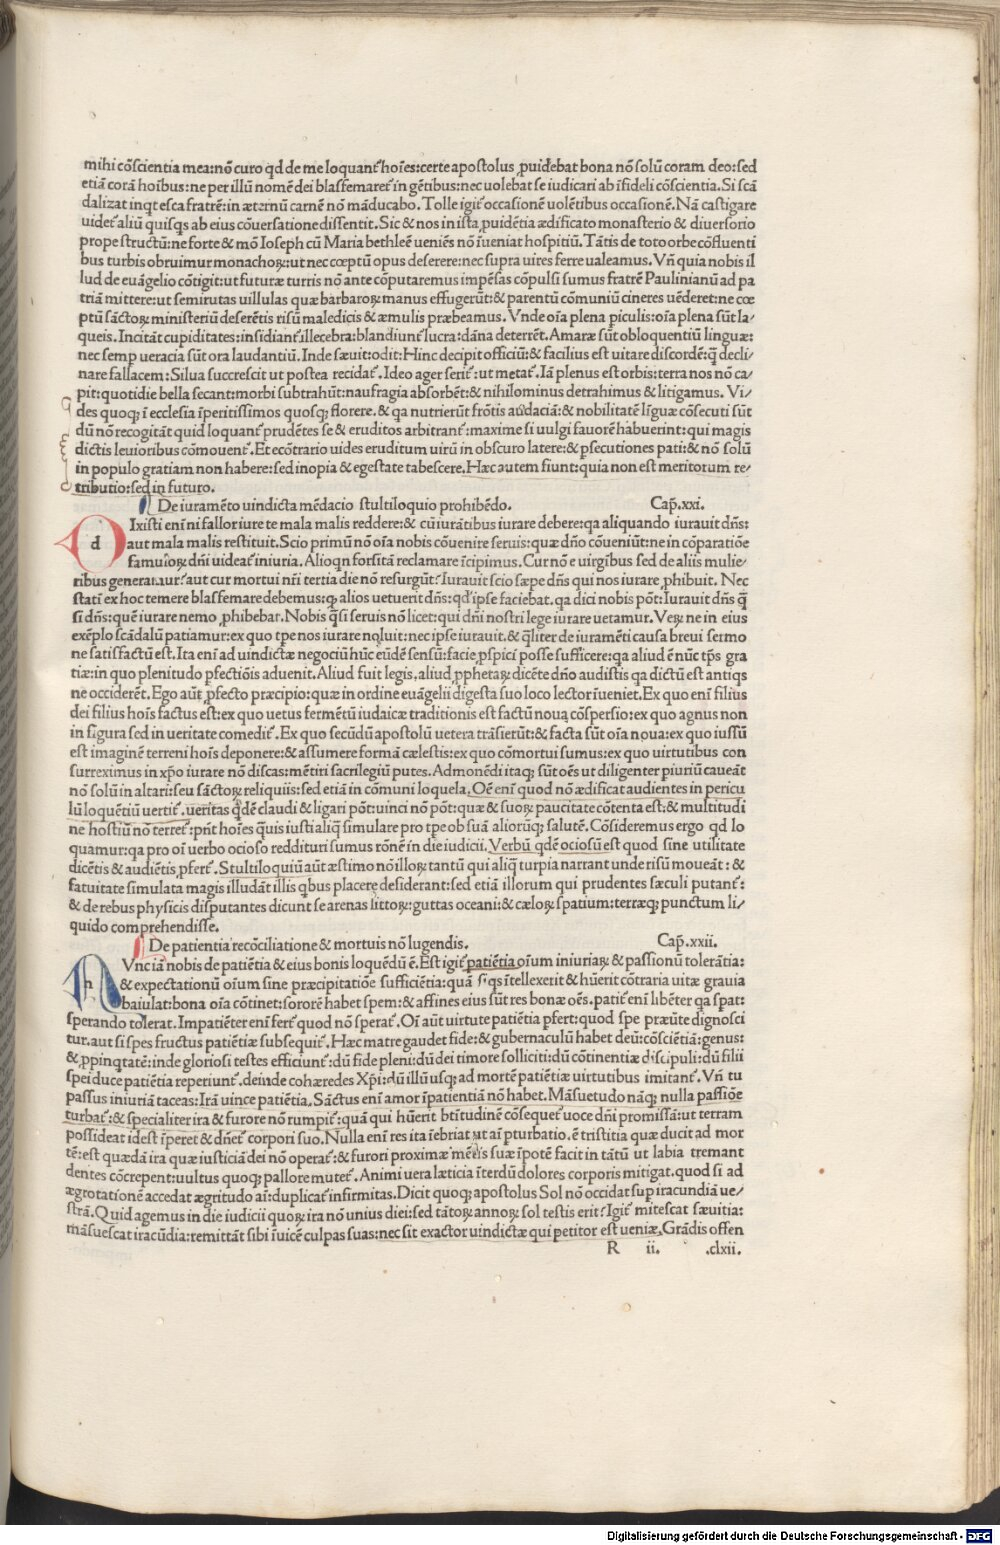 mihi cõscientia mea:nõ curo qd de me loquant᷑ hoĩes:certe apostolus ꝓuidebat bona nõ solũ coram deo:sed
etiã corã hoĩbus:ne per illũ nomẽ dei blasfemaret᷑ in gẽtibus:nec uolebat se iudicari ab ĩfideli cõscientia. Si scã
dalizat inqt esca fratrẽ:in æternũ carnẽ nõ mãducabo. Tolle igit᷑ occasionẽ uolẽtibus occasionẽ. Nã castigare
uidet᷑ aliũ quisqs ab eius cõuersatione dissentit. Sic & nos in ista ꝓuidẽtia ædificato monasterio & diuersorio
prope structũ:ne forte & mõ Ioseph cũ Maria bethleẽ ueniẽs nõ ĩueniat hospitiũ. Tãtis de toto orbe cõfluenti
bus turbis obruimur monachoꝝ:ut nec cœptũ opus deserere:nec supra uires ferre ualeamus. Vñ quia nobis il
lud de euãgelio cõtigit:ut futuræ turris nõ ante cõputaremus impẽsas cõpulsi sumus fratrẽ Paulinianũ ad pa
triã mittere:ut semirutas uillulas quæ barbaroꝝ manus effugerũt:& parentũ cõmuniũ cineres uẽderet:ne cœ
ptũ sãctoꝝ ministeriũ deserẽtis risũ maledicis & æmulis præbeamus. Vnde oĩa plena piculis:oĩa plena sũt la⸗
queis. Incitãt cupiditates:insidiant᷑ illecebra:blandiunt᷑ lucra:dãna deterrẽt. Amaræ sũt obloquentiũ linguæ:
nec semp ueracia sũt ora laudantiũ. Inde sæuit:odit:Hinc decipit officiũ:& facilius est uitare discordẽ:q̃ decli⸗
nare fallacem:Silua succrescit ut postea recidat᷑. Ideo ager serit᷑:ut metat᷑. Iã plenus est orbis:terra nos nõ ca⸗
pit:quotidie bella secant:morbi subtrahũt:naufragia absorbẽt:& nihilominus detrahimus & litigamus. Vi⸗
des quoq; ĩ ecclesia ĩperitissimos quosq; florere.& qa nutrierũt frõtis audaciã:& nobilitatẽ lĩguæ cõsecuti sũt
dũ nõ recogitãt quid loquant᷑ prudẽtes se & eruditos arbitrant᷑:maxime si uulgi fauorẽ habuerint:qui magis
dictis leuioribus cõmouent᷑. Et ecõtrario uides eruditum uirũ in obscuro latere:& psecutiones pati:& nõ solũ
in populo gratiam non habere:sed inopia & egestate tabescere. Hæc autem fiunt:quia non est meritorum re⸗
tributio:sed in futuro.
De iuramẽto uindicta mẽdacio stultiloquio prohibẽdo. Cap̃.xxi.
d Ixisti eni ni fallor iure te mala malis reddere:& cũ iurãtibus iurare debere:qa aliquando iurauit dñs:
aut mala malis restituit. Scio primũ nõ oĩa nobis cõuenire seruis:quæ dño cõueniũt:ne in cõparatiõe
famuloꝝ dñi uideat᷑ iniuria. Alioqn forsitã reclamare ĩcipimus. Cur nõ e uirgibus sed de aliis mulie⸗
ribus generat.aur? aut cur mortui nr̃i tertia die nõ resurgũt? Iurauit scio sæpe dñs qui nos iurare ꝓhibuit. Nec
statĩ ex hoc temere blasfemare debemus:q̃ alios uetuerit dñs:qd ipse faciebat.qa dici nobis põt:Iurauit dñs q̃
si dñs:quẽ iurare nemo ꝓhibebar. Nobis q̃si seruis nõ licet:qui dñi nostri lege iurare uetamur. Veꝝ ne in eius
exẽplo scãdalũ patiamur:ex quo tpe nos iurare noluit:nec ipse iurauit.& q̃liter de iuramẽti causa breui sermo
ne satisfactũ est. Ita eni ad uindictæ negociũ hũc eũdẽ sensũ:facie ꝑspici posse sufficere:qa aliud ẽ nũc tp̃s gra
tiæ:in quo plenitudo pfectiõis aduenit. Aliud fuit legis.aliud ꝓphetaꝝ dicẽte dño audistis qa dictũ est antiqs
ne occiderẽt. Ego aũt ꝓfecto præcipio:quæ in ordine euãgelii digesta suo loco lector ĩueniet. Ex quo eni filius
dei filius hoĩs factus est:ex quo uetus fermẽtũ iudaicæ traditionis est factũ noua cõspersio:ex quo agnus non
in figura sed in ueritate comedit᷑. Ex quo secũdũ apostolũ uetera trãsierũt:& facta sũt oĩa noua:ex quo iussũ
est imaginẽ terreni hoĩs deponere:& assumere formã cælestis:ex quo cõmortui sumus:ex quo uirtutibus con
surreximus in xp̃o iurare nõ discas:mẽtiri sacrilegiũ putes. Admonẽdi itaq; sũt oẽs ut diligenter piuriũ caueãt
nõ solũ in altari:seu sãctoꝝ reliquiis:sed etiã in cõmuni loquela. Oẽ eni quod nõ ædificat audientes in pericu
lũ loquẽtiũ uertit᷑.ueritas q̃dẽ claudi & ligari põt:uinci nõ põt:quæ & suoꝝ paucitate cõtenta est:& multitudi
ne hostiũ nõ terret᷑:pñt hoĩes q̃uis iusti aliq̃ simulare pro tpe ob suã aliorũq; salutẽ. Cõsideremus ergo qd lo
quamur:qa pro oĩ uerbo ocioso reddituri sumus rõnẽ in die iudicii. Verbũ qdẽ ociosũ est quod sine utilitate
dicẽtis & audiẽtis ꝓfert᷑. Stultiloquiũ aũt æstimo nõ illoꝝ tantũ qui aliq̃ turpia narrant unde risũ moueãt:&
fatuitate simulata magis illudãt illis qbus placere desiderant:sed etiã illorum qui prudentes sæculi putant᷑:
& de rebus physicis disputantes dicunt se arenas littoꝝ:guttas oceani:& cæloꝝ spatium:terræq; punctum li⸗
quido comprehendisse.
De patientia recõciliatione & mortuis nõ lugendis. Cap̃.xxii.
n Vnc iã nobis de patiẽtia & eius bonis loquẽdũ ẽ. Est igit᷑ patiẽtia oĩum iniuriaꝝ & passionũ tolerãtia:
& expectationũ oĩum sine præcipitatiõe sufficiẽtia:quã siqs ĩtellexerit & hũerit cõtraria uitæ grauia
baiulat:bona oĩa cõtinet:sororẽ habet spem:& affines eius sũt res bonæ oẽs.patit᷑ eni libẽter qa spat:
sperando tolerat. Impatiẽter eni fert᷑ quod nõ sperat᷑. Oĩ aũt uirtute patiẽtia pfert᷑:quod spe præũte dignosci
tur.aut si spes fructus patiẽtiæ subsequit᷑. Hæc matre gaudet fide:& gubernaculũ habet deũ:cõsciẽtiã:genus:
& ꝓpinqtatẽ:inde gloriosi testes efficiunt᷑:dũ fide pleni:dũ dei timore solliciti:dũ cõtinentiæ discipuli:dũ filii
spei duce patiẽtia reperiunt᷑.deinde cohæredes Xp̃i:dũ illũ usq; ad mortẽ patiẽtiæ uirtutibus imitant᷑. Vñ tu
passus iniuriã taceas:Irã uince patiẽtia. Sãctus eni amor ĩpatientiã nõ habet. Mãsuetudo nãq; nulla passiõe
turbat᷑:& specialiter ira & furore nõ rumpit᷑:quã qui hũerit btĩtudinẽ cõsequet᷑ uoce dñi promissã:ut terram
possideat idest ĩperet & dñet᷑ corpori suo. Nulla eni res ita ĩebriat ut aĩ pturbatio.ẽ tristitia quæ ducit ad mor
tẽ:est quædã ira quæ iusticiã dei nõ operat᷑:& furori proximæ mẽtis suæ ĩpotẽ facit in tãtũ ut labia tremant
dentes cõcrepent:uultus quoq; pallore mutet᷑. Animi uera læticia ĩterdũ dolores corporis mitigat.quod si ad
ægrotationẽ accedat ægritudo aĩ:duplicat᷑ infirmitas. Dicit quoq; apostolus Sol nõ occidat sup iracundiã ue⸗
strã. Quid agemus in die iudicii quoꝝ ira nõ unius diei:sed tãtoꝝ annoꝝ sol testis erit? Igit᷑ mitescat sæuitia:
mãsuescat iracũdia:remittãt sibi ĩuicẽ culpas suas:nec sit exactor uindictæ qui petitor est ueniæ. Grãdis offen
R ii. .clxii.
Digitalisierung gefördert durch die Deutsche Forschungsgemeinschaft - DFG